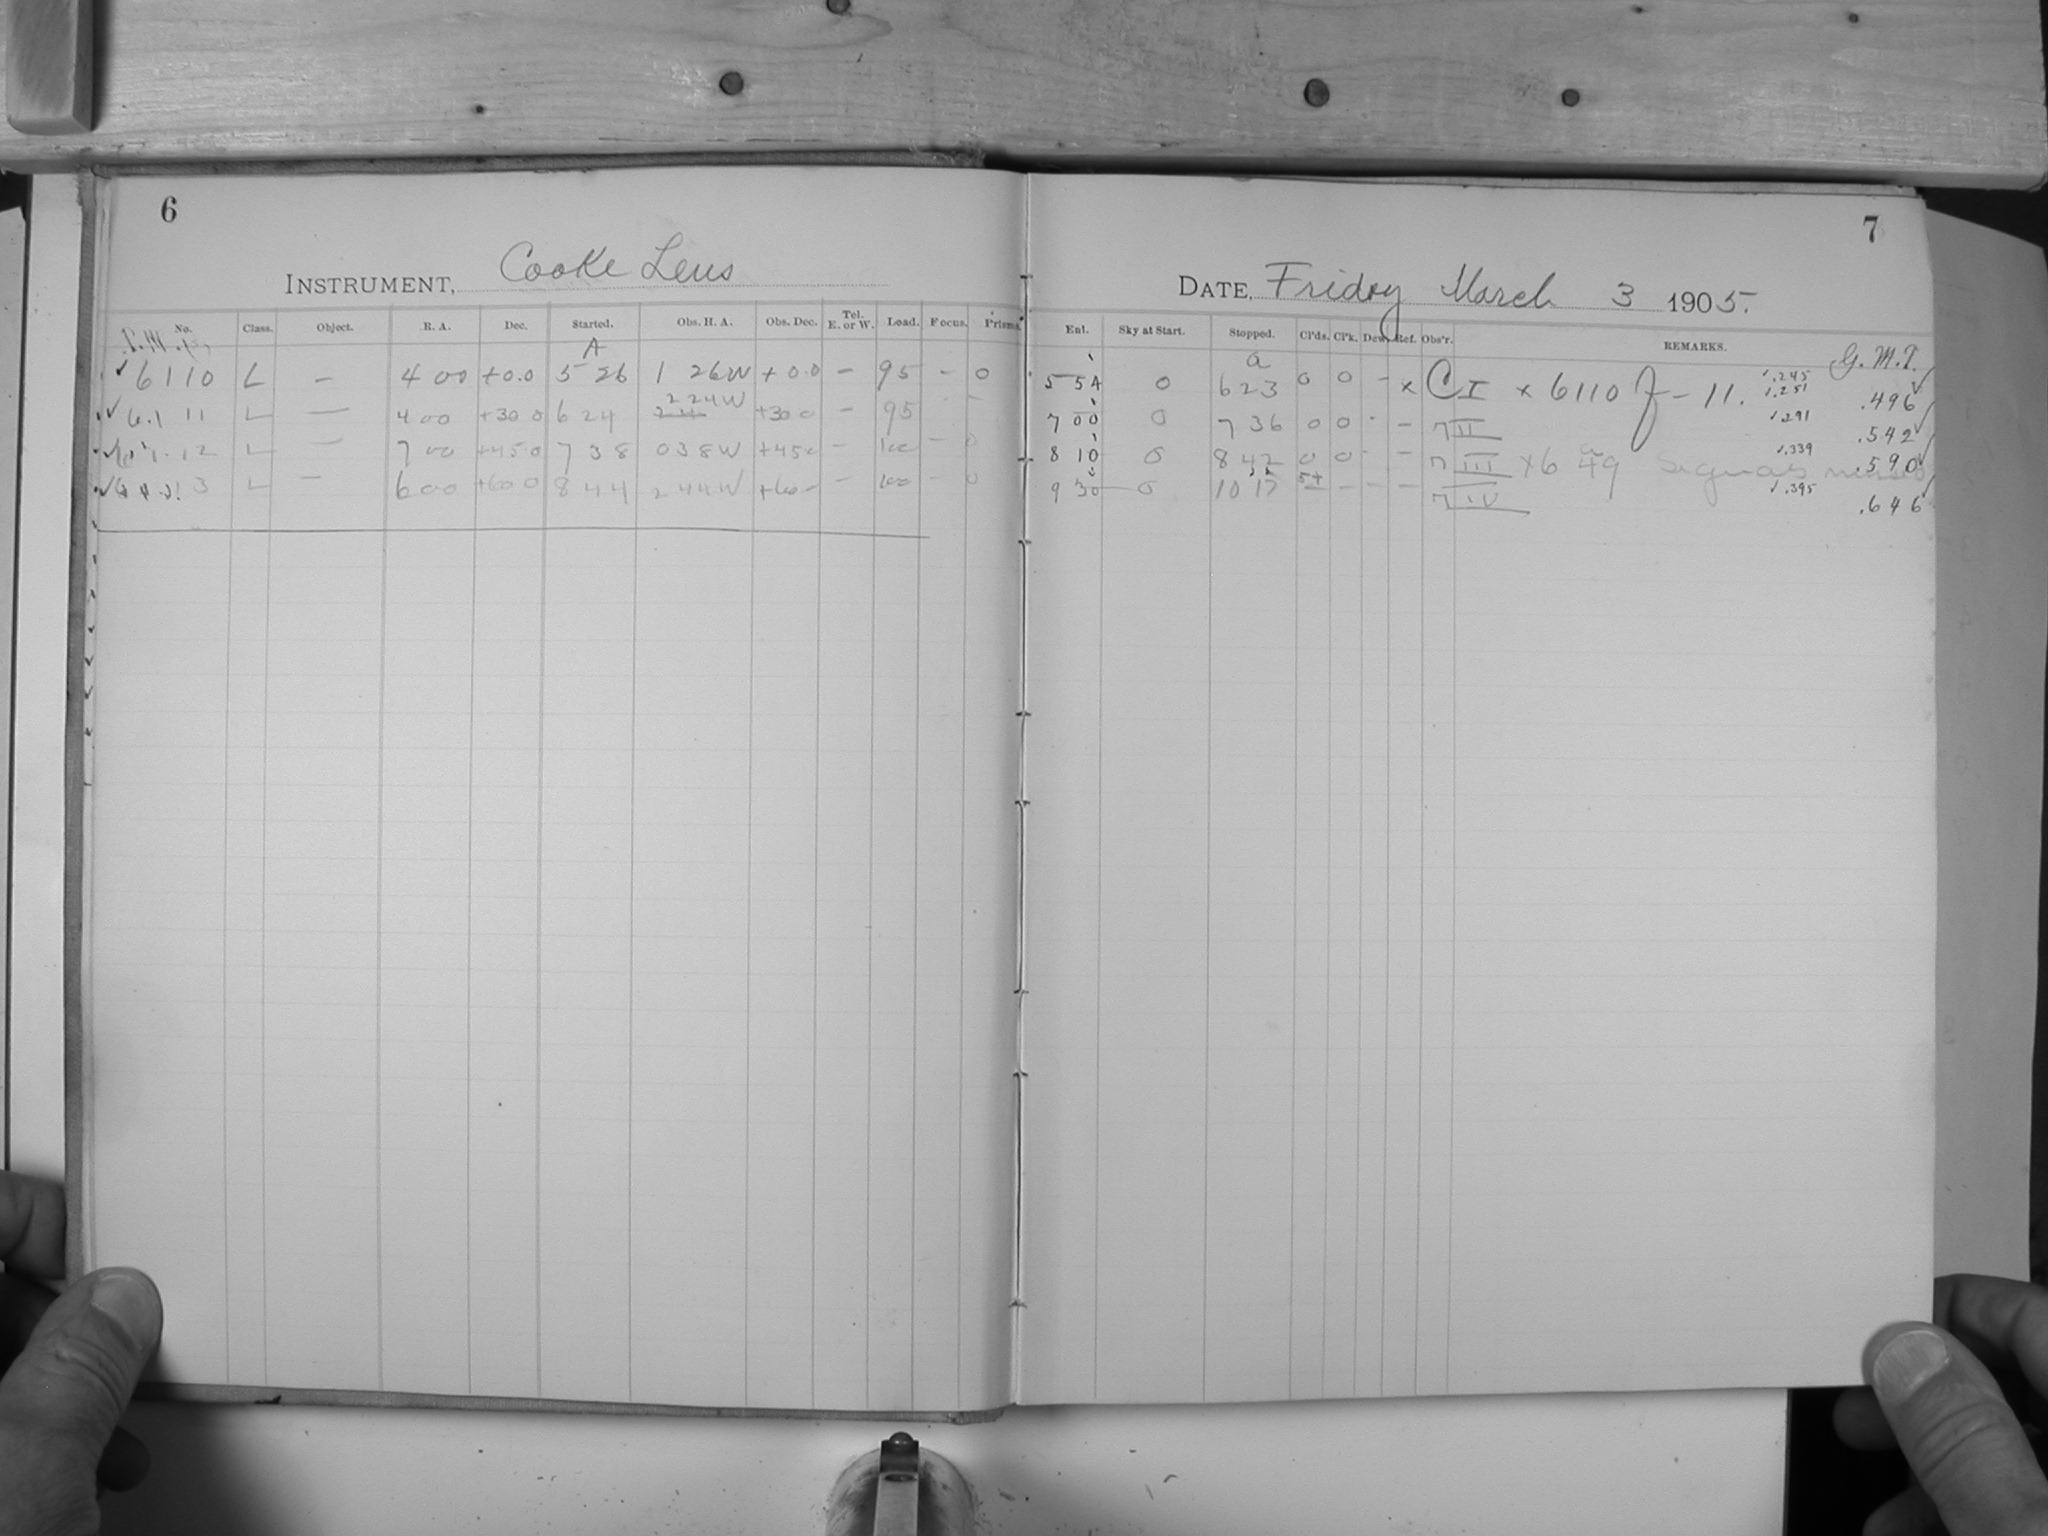 6
7
INSTRUMENT, Cooke Lens
DATE, Friday March 3 1905.
No. Class. Object. R. A. Dec. Started. Obs. H. A. Obs. Dec. Tel. E. or W. Load. Focus. Prisms.
Ent. Sky at Start. Stopped. Cl'ds. Cl'k. Dew. Ref. Obs'r. REMARKS. G. M. T.
A
a
✓ 6110 L — 4 00 +0.0 5 26 1 26W +0.0 — 95 — 0
5 54 0 6 23 0 0 - x C I x 6110 f - 11. .245 .251 .496
✓ 6.1 11 L — 4 00 +30 0 6 24 2 24W +30 0 — 95
7 00 0 7 36 0 0 - — " II .291 .542
✓ 12 L — 7 00 +45 0 7 38 0 38W +45 0 — 100 — 0
8 10 0 8 42 0 0 - - " III x 6 49 Signals .339 .590
✓ 3 L — 6 00 +60 0 8 44 2 44W +60 — 100 — 0
9 30 0 10 17 5+ - - - " IV .395 .646